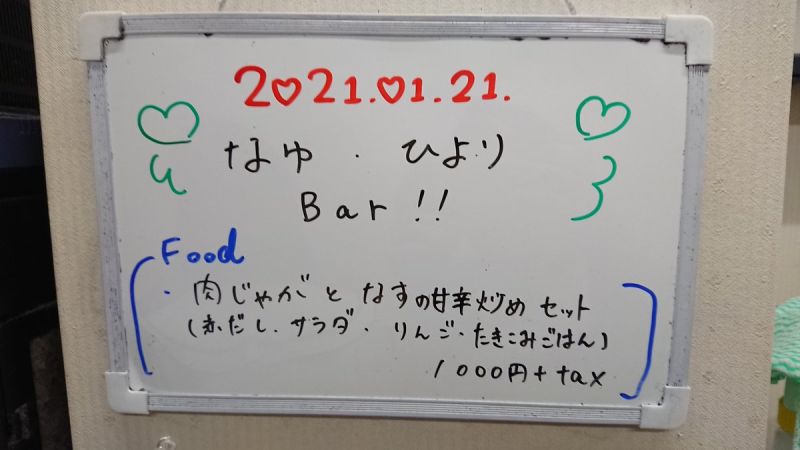 2♡21.♡1.21.
なゆ . ひより
Bar !!
Food
・肉じゃがと なすの甘辛炒め セット
(赤だし、サラダ・りんご・たきこみごはん)
1000円+tax